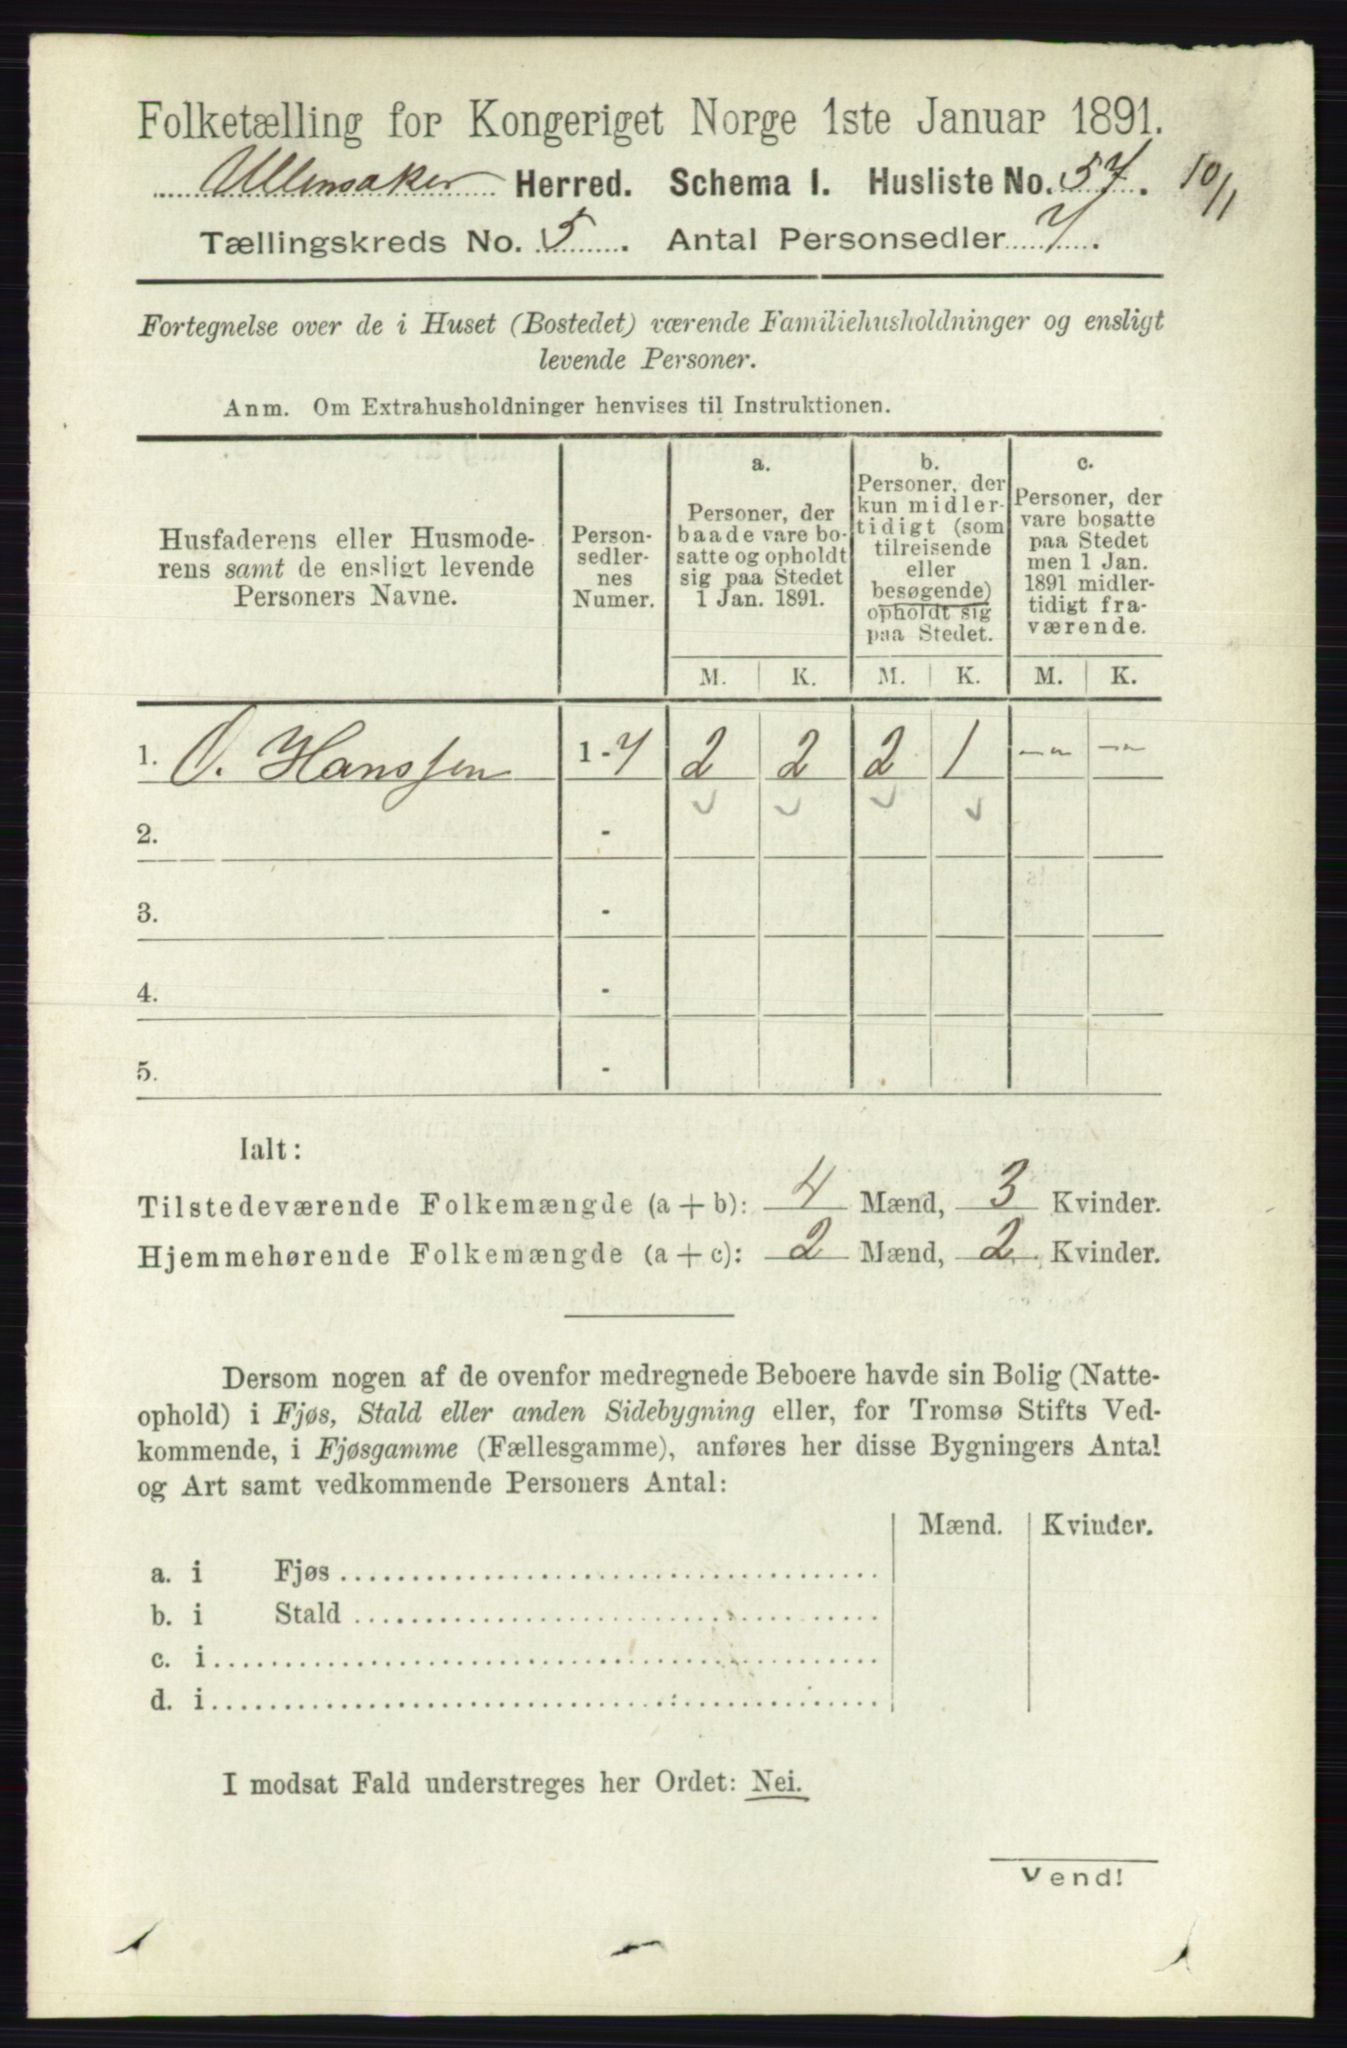 Folketælling for Kongeriget Norge 1ste Januar 1891.
Ullensaker Herred. Schema I. Husliste No. 57. 10/1
Tællingskreds No. 5. Antal Personsedler 7.
Fortegnelse over de i Huset (Bostedet) værende Familiehusholdninger og ensligt
levende Personer.
Anm. Om Extrahusholdninger henvises til Instruktionen.
Husfaderens eller Husmode-
rens samt de ensligt levende
Personers Navne.
Person-
sedler-
nes
Numer.
a.
Personer, der
baade vare bo-
satte og opholdt
sig paa Stedet
1 Jan. 1891.
b.
Personer, der
kun midler-
tidigt (som
tilreisende
eller
besøgende)
opholdt sig
paa Stedet.
c.
Personer, der
vare bosatte
paa Stedet
men 1 Jan.
1891 midler-
tidigt fra-
værende.
M. K. M. K. M. K.
1. O. Hanssen 1-7 2 2 2 1 — —
2. -
3. -
4. -
5. -
Ialt:
Tilstedeværende Folkemængde (a + b): 4 Mænd, 3 Kvinder.
Hjemmehørende Folkemængde (a + c): 2 Mænd, 2 Kvinder.
Dersom nogen af de ovenfor medregnede Beboere havde sin Bolig (Natte-
ophold) i Fjøs, Stald eller anden Sidebygning eller, for Tromsø Stifts Ved-
kommende, i Fjøsgamme (Fællesgamme), anføres her disse Bygningers Antal
og Art samt vedkommende Personers Antal:
Mænd. Kvinder.
a. i Fjøs
b. i Stald
c. i
d. i
I modsat Fald understreges her Ordet: Nei.
Vend!